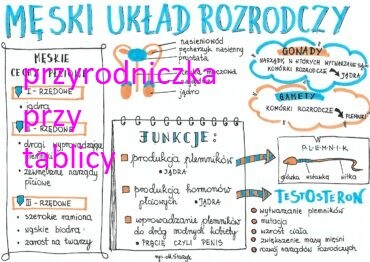 MĘSKI UKŁAD ROZRODCZY
MĘSKIE
przyrodniczka
przy
tablicy
I - RZĘDOWE
jądra
drogi wyprowadzające
zewnętrzne narządy
płciowe
III - RZĘDOWE
szerokie ramiona
wąskie biodra
zarost na twarzy
nasieniowód
pęcherzyk nasienny
prostata
jądro
FUNKCJE:
produkcja plemników
JĄDRA
produkcja hormonów
płciowych
JĄDRA
wprowadzanie plemników
do dróg rodnych kobiety
PRĄCIE CZYLI PENIS
GONADY
NARZĄDY, W KTÓRYCH WYTWARZANE SĄ
KOMÓRKI ROZRODCZE
JĄDRA
GAMETY
KOMÓRKI ROZRODCZE
PLEMNIKI
PLEMNIK
główka
wstawka
witka
TESTOSTERON
wytwarzanie plemników
mutacja
wzrost ciała
zwiększenie masy mięśni
rozwój narządów rozrodczych